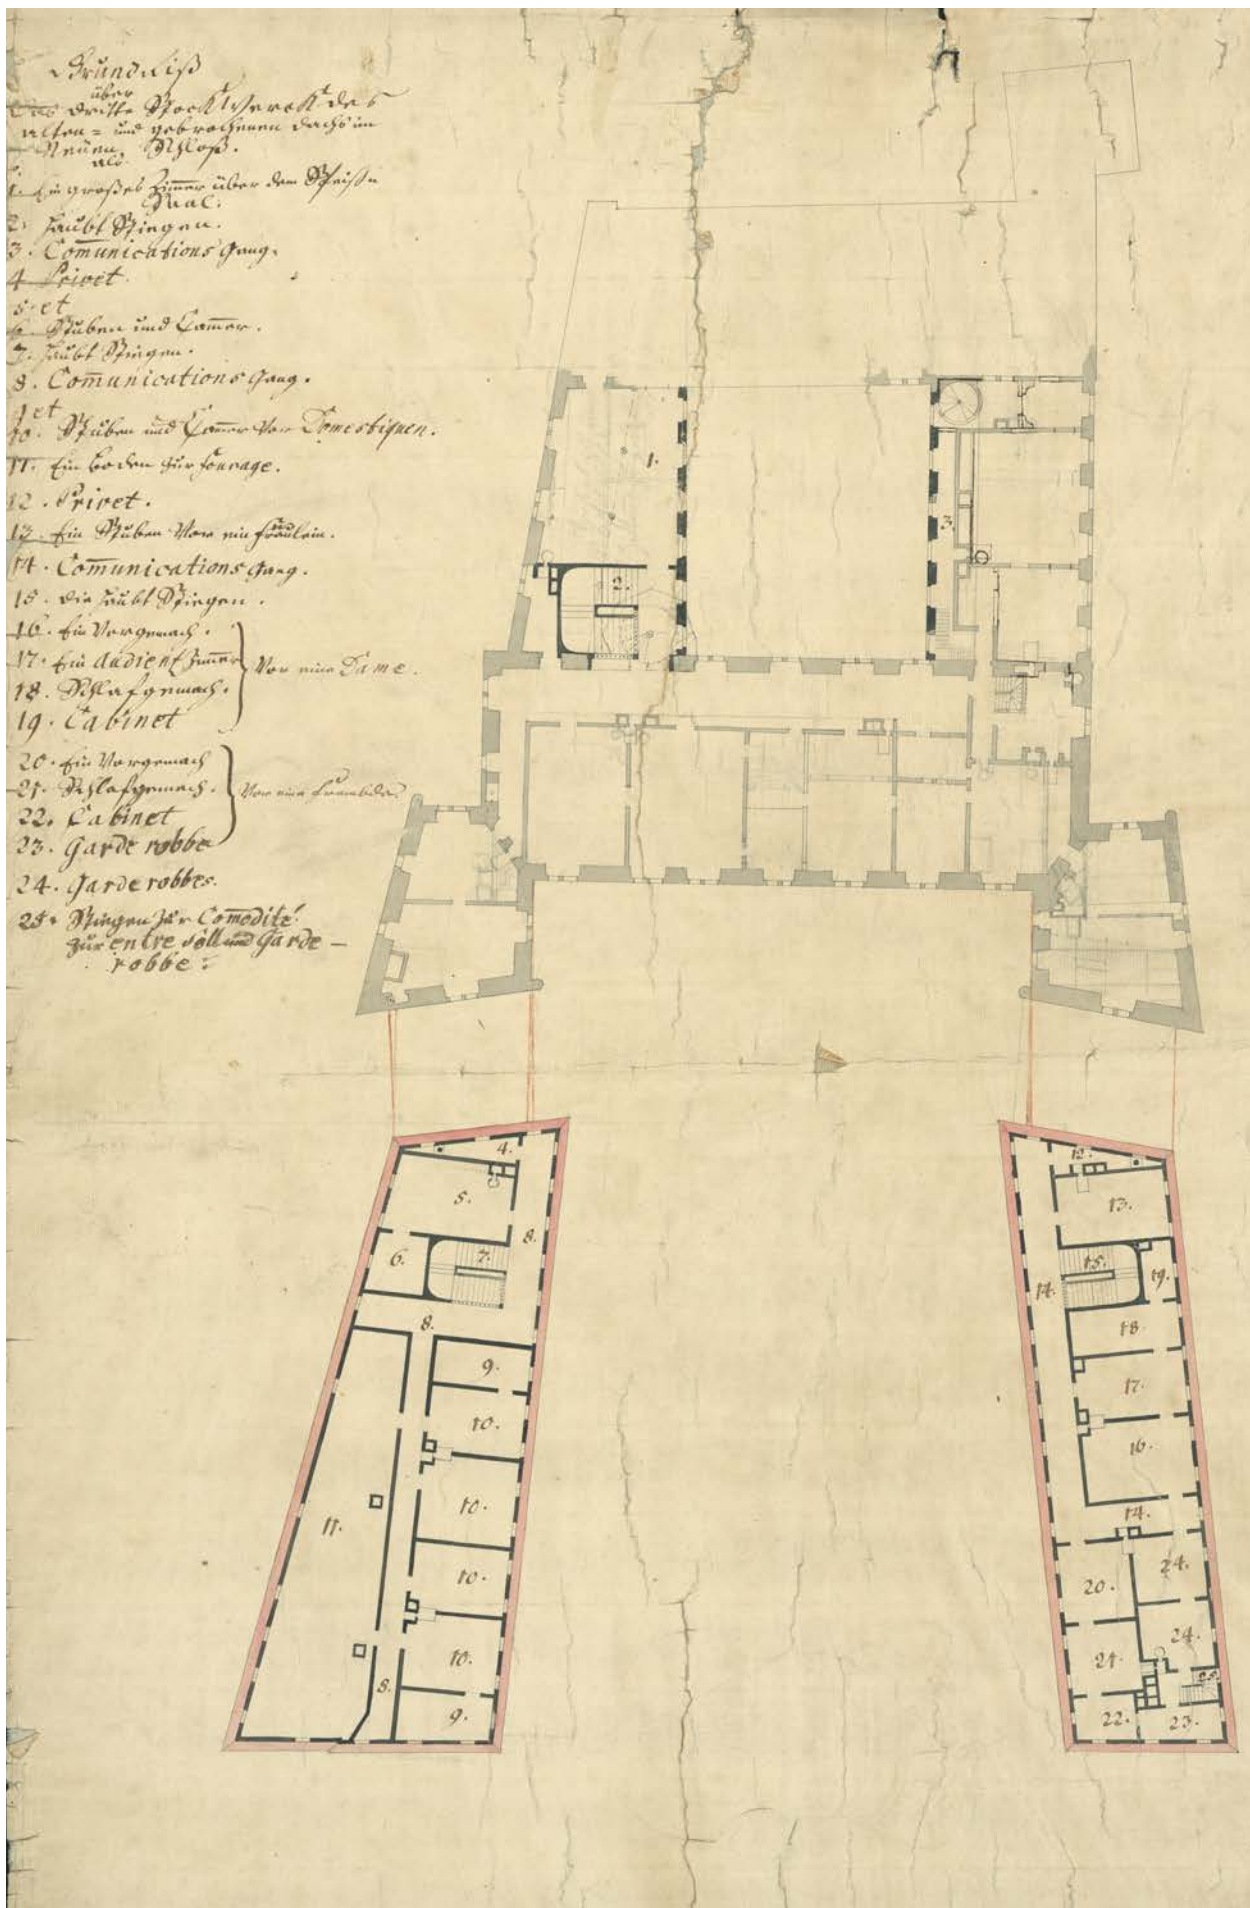 Grundriß
über
das dritte Stockwerck des
alten= und gebrochenen dachs im
Neuen Schloß.
als
1. Ein großes Zimmer über dem Speiße
Saal.
2. Haubt Stiegen.
3. Comunications Gang.
4. Privet.
5. et
6. Stuben und Camer.
7. Haubt Stiegen.
8. Comunications Gang.
9 et
10. Stuben und Camer Vor Domestiquen.
11. Ein boden zur fourage.
12. Privet.
13. Ein Stuben Vor ein fräulein.
14. Comunications Gang.
15. die Haubt Stiegen.
16. Ein Vorgemach.
17. Ein Audienz Zimmer
18. Schlafgemach.
19. Cabinet
Vor eine Dame.
20. Ein Vorgemach
21. Schlafgemach.
22. Cabinet
23. Garde robbe
Vor eine
24. Garderobbes.
25. Stiegen zur Comodité
zur entre soll und Garde
robbe.
1.
2.
3.
4.
5.
6.
7.
8.
8.
9.
10.
10.
10.
10.
9.
8.
11.
12.
13.
15.
19.
14.
18.
17.
16.
14.
20.
24.
21.
24.
25.
22.
23.